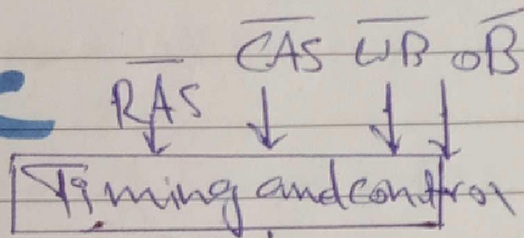 C̅A̅S̅ W̅B̅ o̅B̅
R̅A̅S̅
Timing and control